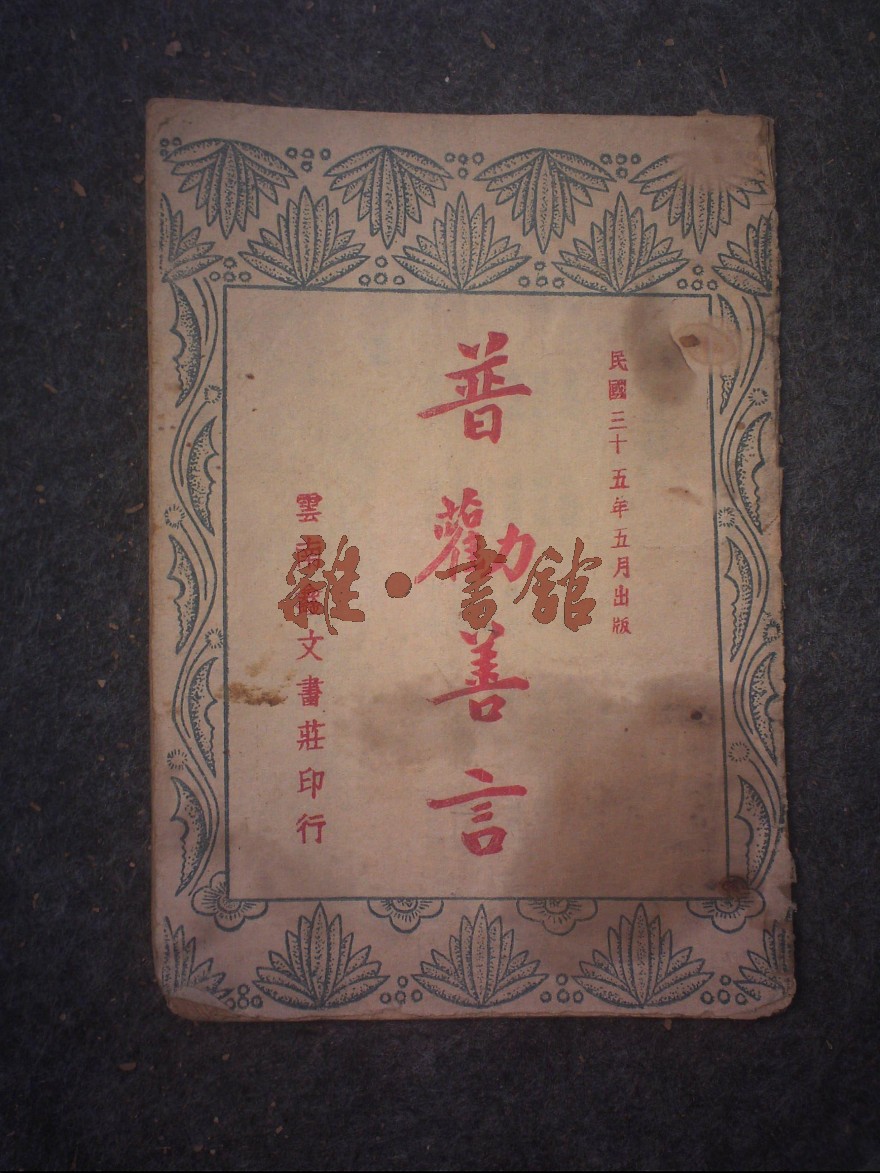 民國三十五年五月出版
普勸善言
雲南鑫文書莊印行
雜·書館